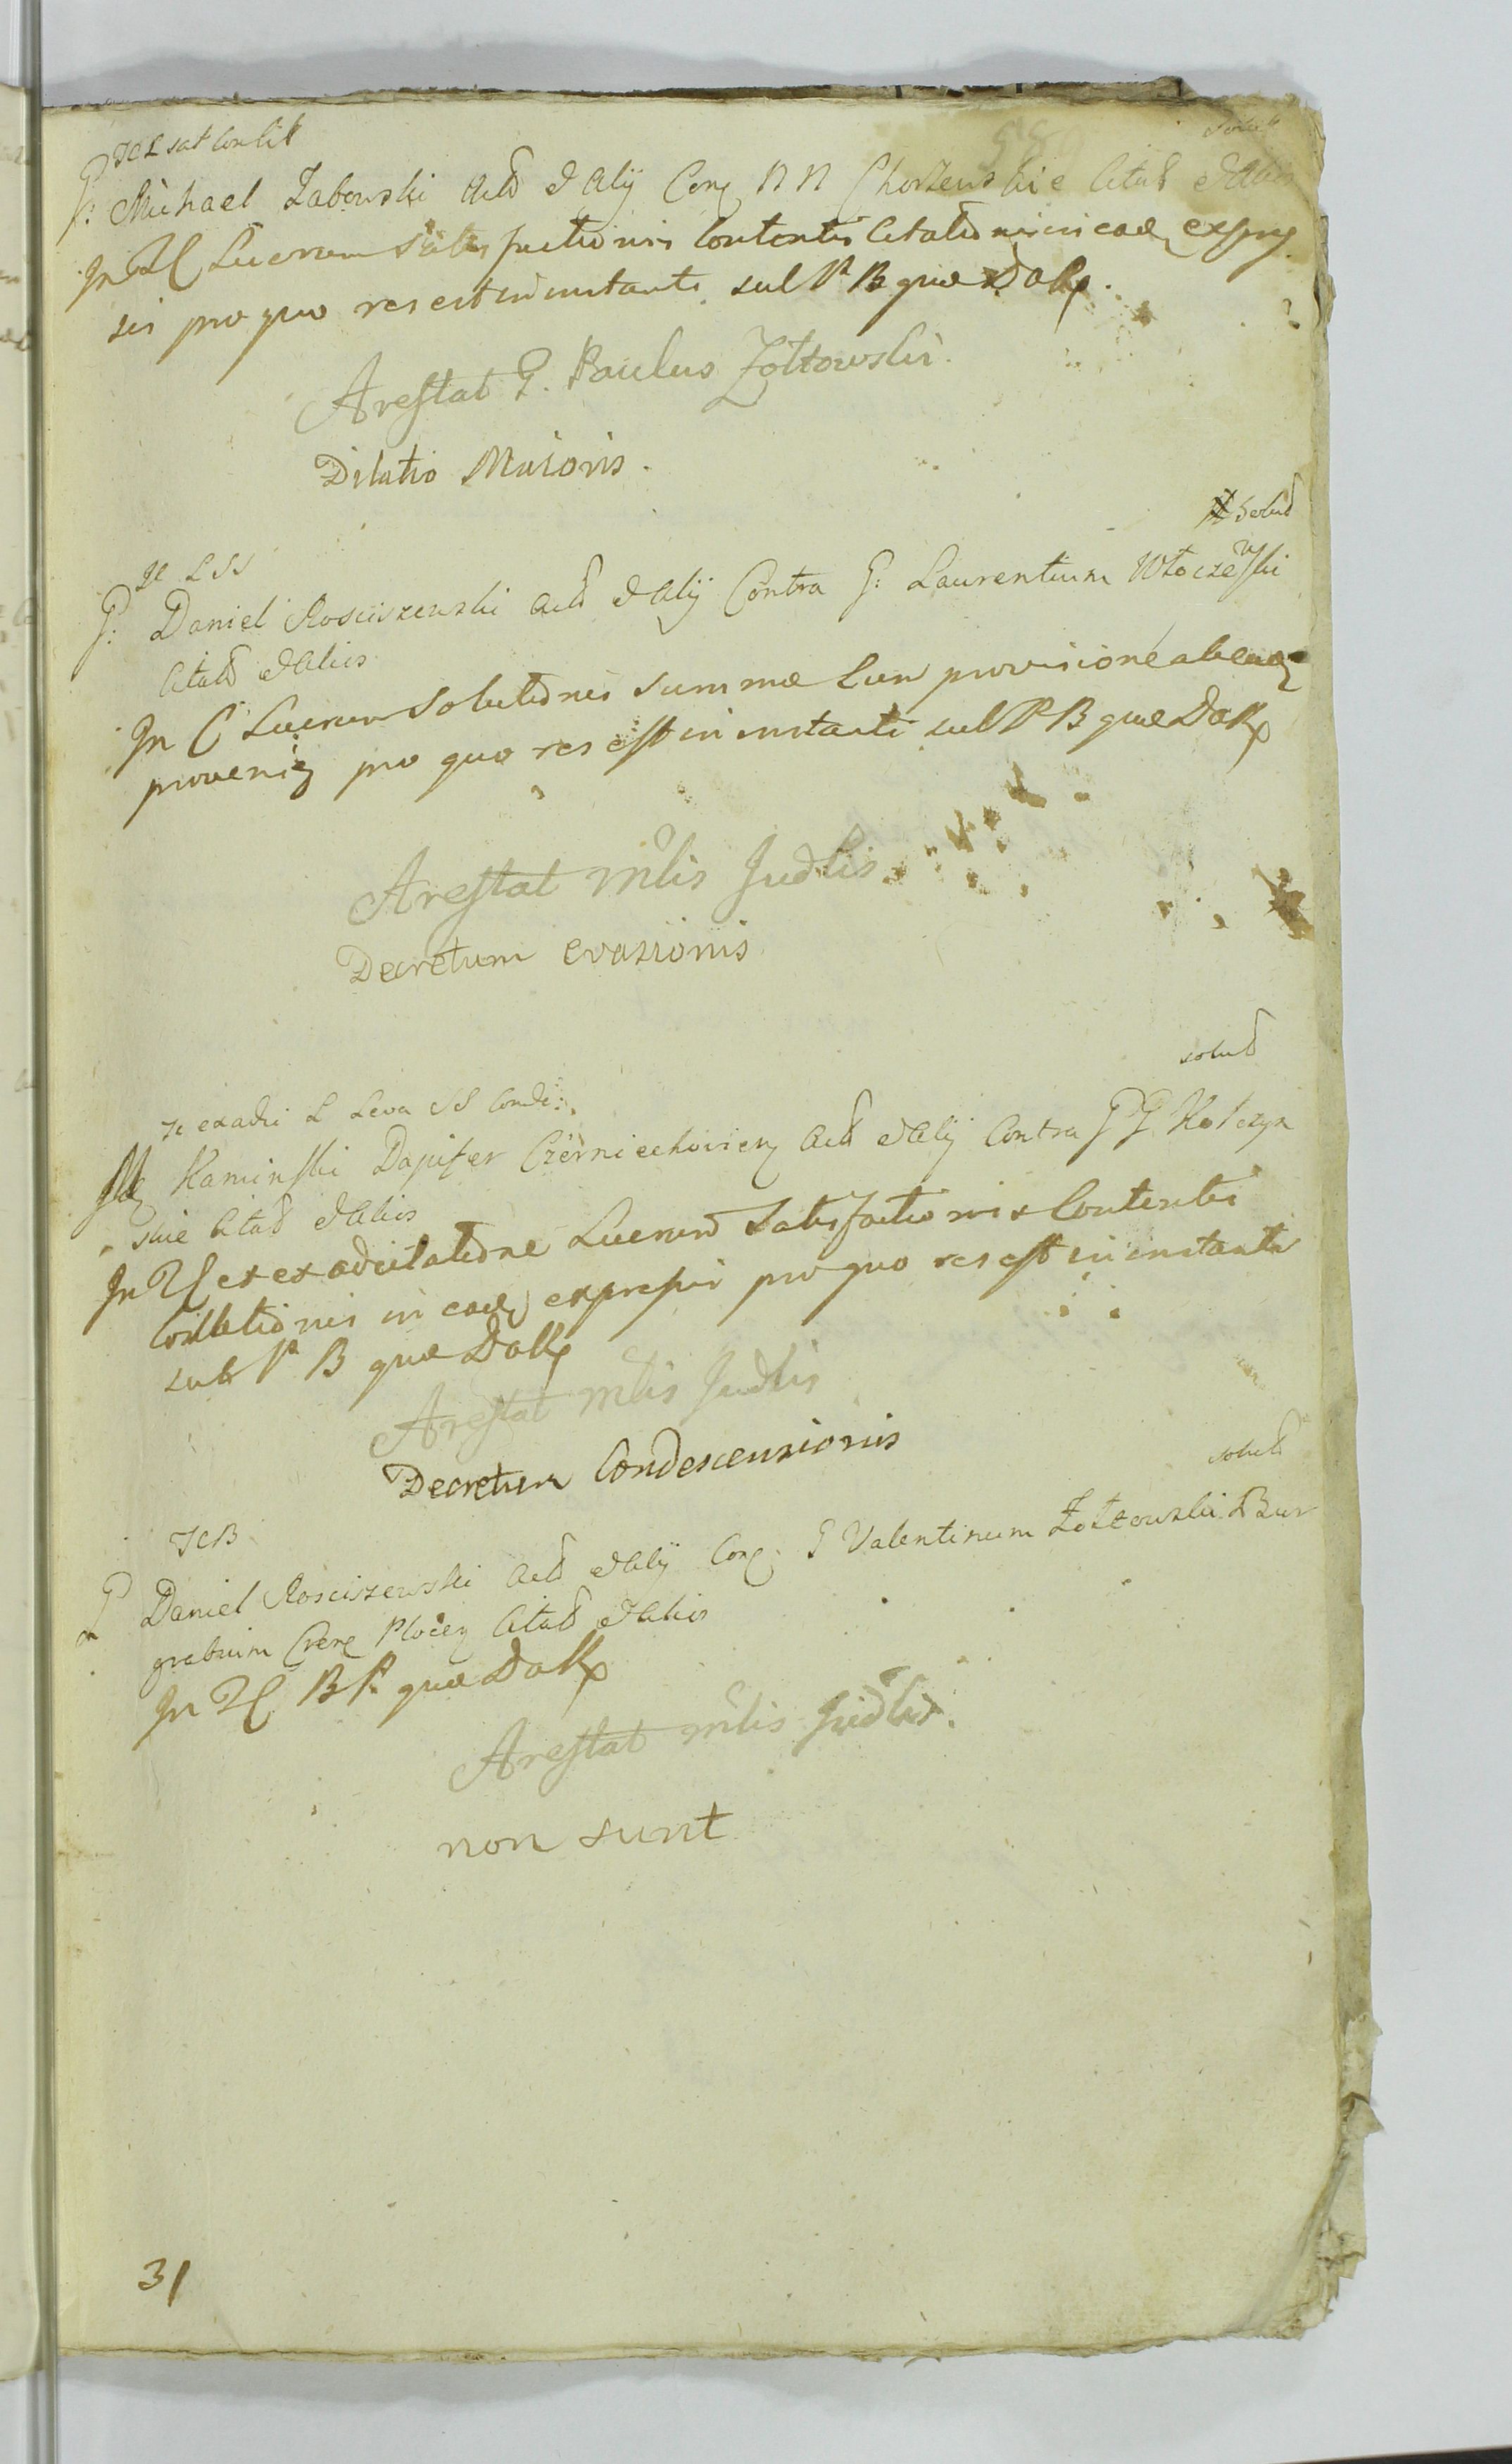 TCL sat Contt
solut
G: Michael Zabowski Actt & Alij Conq NN Chorzewskie Citatt & Alios
In TC Lucrum Satisfactionis Contentis Citationis in eadq expres
sis pro quo res est in instanti sub PB quae Dallp.
Arestat G. Paulus Zołtowski.
Dilatio Maioris.
Solutt
TC L SS
G: Daniel Rosciszewski Actt & Alij Contra G: Laurentium Włoczewski
Citatt & Alios
In C Lucrum Solutionis Summae Cum provisione ab eadq
proveniq pro quo res est in instanti sub PB quae Dallp
Arestat Mlis Judlis
Decretum evasionis
solutt
TC exadci L Leva SS Conde:
Kaminski Dapifer Czerniechovienq Actt & Alij Contra GG Kolczyn
skie Citatt & Alios
In TC ex exadcitatione Lucrum Satisfactionis Contentis
Citationis in eadq expressis pro quo res est in instanti
sub P B quae Dallp
Arestat Mlis Judlis
Decretum Condescensionis
solutt
TCB
G Daniel Rosciszewski Actt & Alij Conq. G Valentinum Zołtowski Bur
grabium Crenq Plocenq Citatt & Alios
In TC BP. quae Dallp
Arestat Mlis Judlis.
non sunt
31